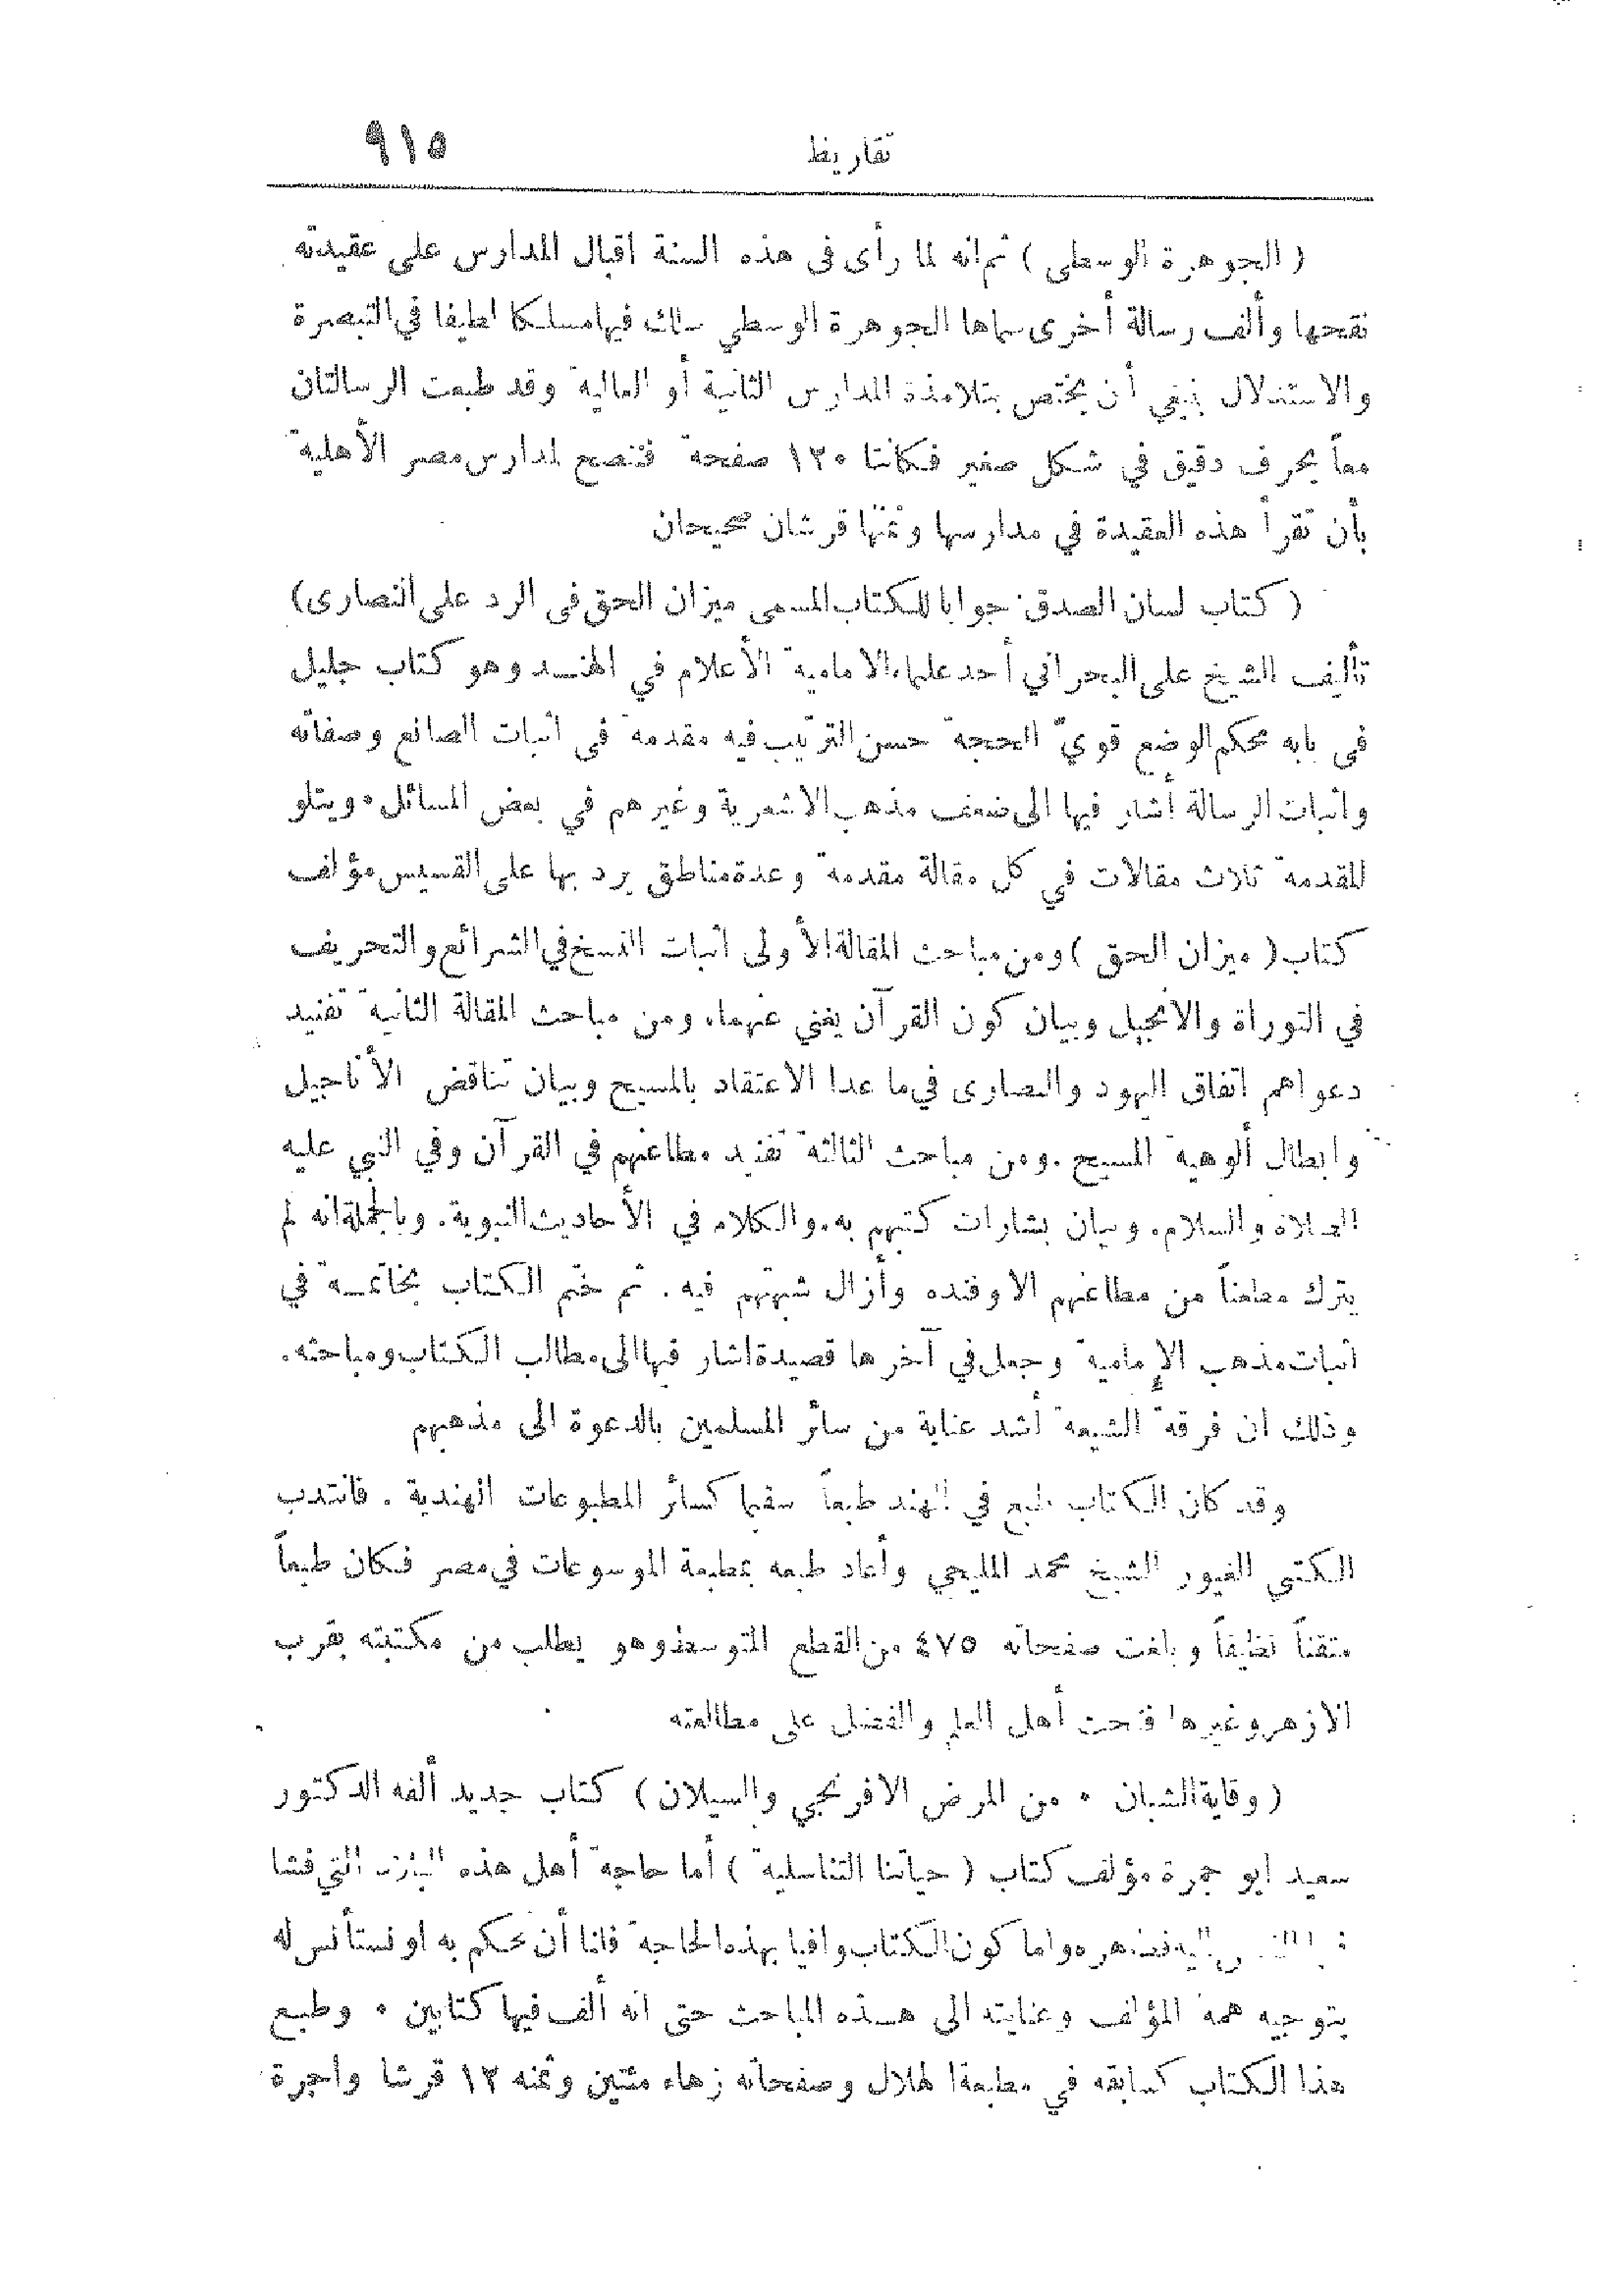 تقاريظ ٩١٥
( الجوهرة الوسطى ) ثم انه لما رأى فى هذه السنة اقبال المدارس على عقيدته
نقحها وألف رسالة أخرى سماها الجوهرة الوسطي سلك فيها مسلكا لطيفا في التبصرة
والاستدلال ينبغي أن يختص بتلامذة المدارس الثانية أو العالية وقد طبعت الرسالتان
معاً بحرف دقيق في شكل صغير فكانتا ١٢٠ صفحة فننصح لمدارس مصر الأهلية
بأن تقرأ هذه العقيدة في مدارسها وثمنها قرشان صحيحان
( كتاب لسان الصدق جوابا للكتاب المسمى ميزان الحق فى الرد على النصارى )
تأليف الشيخ على البحراني أحد علماء الامامية الأعلام في الهند وهو كتاب جليل
فى بابه محكم الوضع قويّ الحجة حسن الترتيب فيه مقدمة فى اثبات الصانع وصفاته
واثبات الرسالة أشار فيها الى ضعف مذهب الاشعرية وغيرهم في بعض المسائل. ويتلو
المقدمة ثلاث مقالات في كل مقالة مقدمة وعدة مناطق يرد بها على القسيس مؤلف
كتاب ( ميزان الحق ) ومن مباحث المقالة الأولى اثبات النسخ في الشرائع والتحريف
في التوراة والانجيل وبيان كون القرآن يغني عنهما، ومن مباحث المقالة الثانية تفنيد
دعواهم اتفاق اليهود والنصارى في ما عدا الاعتقاد بالمسيح وبيان تناقض الأناجيل
وابطال ألوهية المسيح . ومن مباحث الثالثة تفنيد مطاعنهم في القرآن وفي النبي عليه
الصلاة والسلام. وبيان بشارات كتبهم به، والكلام في الأحاديث النبوية. وبالجملة انه لم
يترك مطعناً من مطاعنهم الا وفنده وأزال شبهتهم فيه . ثم ختم الكتاب بخاتمة في
اثبات مذهب الإمامية وجعل في آخرها قصيدة اشار فيها الى مطالب الكتاب ومباحثه.
وذلك ان فرقة الشيعة أشد عناية من سائر المسلمين بالدعوة الى مذهبهم
وقد كان الكتاب طبع في الهند طبعاً سقيما كسائر المطبوعات الهندية . فانتدب
الكتبي الغيور الشيخ محمد المليجي وأعاد طبعه بمطبعة الموسوعات في مصر فكان طبعاً
متقناً نظيفاً وبلغت صفحاته ٤٧٥ من القطع المتوسط وهو يطلب من مكتبته بقرب
الازهر وغيرها فنحث أهل العلم والفضل على مطالعته
( وقاية الشبان . من المرض الافرنجي والسيلان ) كتاب جديد ألفه الدكتور
سعيد ابو جمرة مؤلف كتاب ( حياتنا التناسلية ) أما حاجة أهل هذه البلاد التي فشا
واما كون الكتاب وافيا بهذه الحاجة فانا أن نحكم به او نستأنس له
بتوجيه همة المؤلف وعنايته الى هذه المباحث حتى انه ألف فيها كتابين . وطبع
هذا الكتاب كسابقه في مطبعة الهلال وصفحاته زهاء مئتين وثمنه ١٢ قرشا واجرة